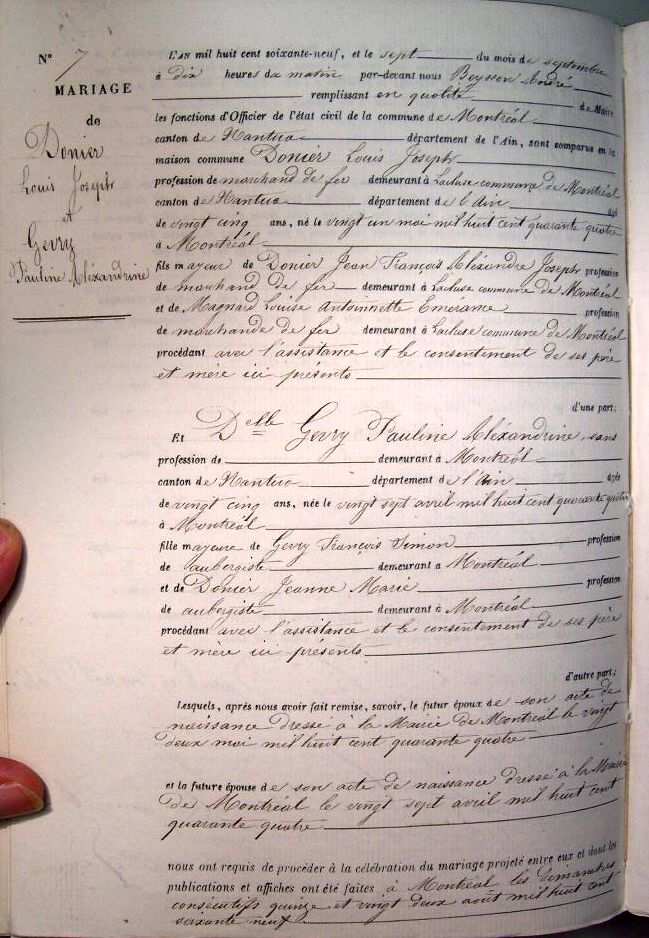 N° 7
MARIAGE
de
Donier
Louis Joseph
et
Gerry
Pauline Aléxandrine
L'AN mil huit cent soixante-neuf, et le sept du mois de septembre
à dix heures du matin par-devant nous Beysson André
remplissant en qualité de Maire
les fonctions d'Officier de l'état civil de la commune de Montréal
canton de Nantua département de l'Ain, sont comparus en la
maison commune Donier Louis Joseph
profession de marchand de fer demeurant à Lacluse commune de Montréal
canton de Nantua département de l'Ain âgé
de vingt cinq ans, né le vingt un mai mil huit cent quarante quatre
à Montréal
fils mayeur de Donier Jean François Aléxandre Joseph profession
de marchand de fer demeurant à Lacluse commune de Montréal
et de Magnard Louise Antoinnette Emérance profession
de marchande de fer demeurant à Lacluse commune de Montréal
procédant avec l'assistance et le consentement de ses père
et mère ici présents
d'une part;
Et Delle Gerry Pauline Aléxandrine, sans
profession de demeurant à Montréal
canton de Nantua département de l'Ain âgée
de vingt cinq ans, née le vingt sept avril mil huit cent quarante quatre
à Montréal
fille mayeure de Gerry François Simon profession
de aubergiste demeurant à Montréal
et de Donier Jeanne Marie profession
de aubergiste demeurant à Montréal
procédant avec l'assistance et le consentement de ses père
et mère ici présents
d'autre part;
Lesquels, après nous avoir fait remise, savoir, le futur époux de son acte de
naissance dressé à la Mairie de Montréal le vingt
deux mai mil huit cent quarante quatre
et la future épouse de son acte de naissance dressé à la Mairie
de Montréal le vingt sept avril mil huit cent
quarante quatre
nous ont requis de procéder à la célébration du mariage projeté entre eux et dont les
publications et affiches ont été faites à Montréal les dimanches
consécutifs quinze et vingt deux août mil huit cent
soixante neuf